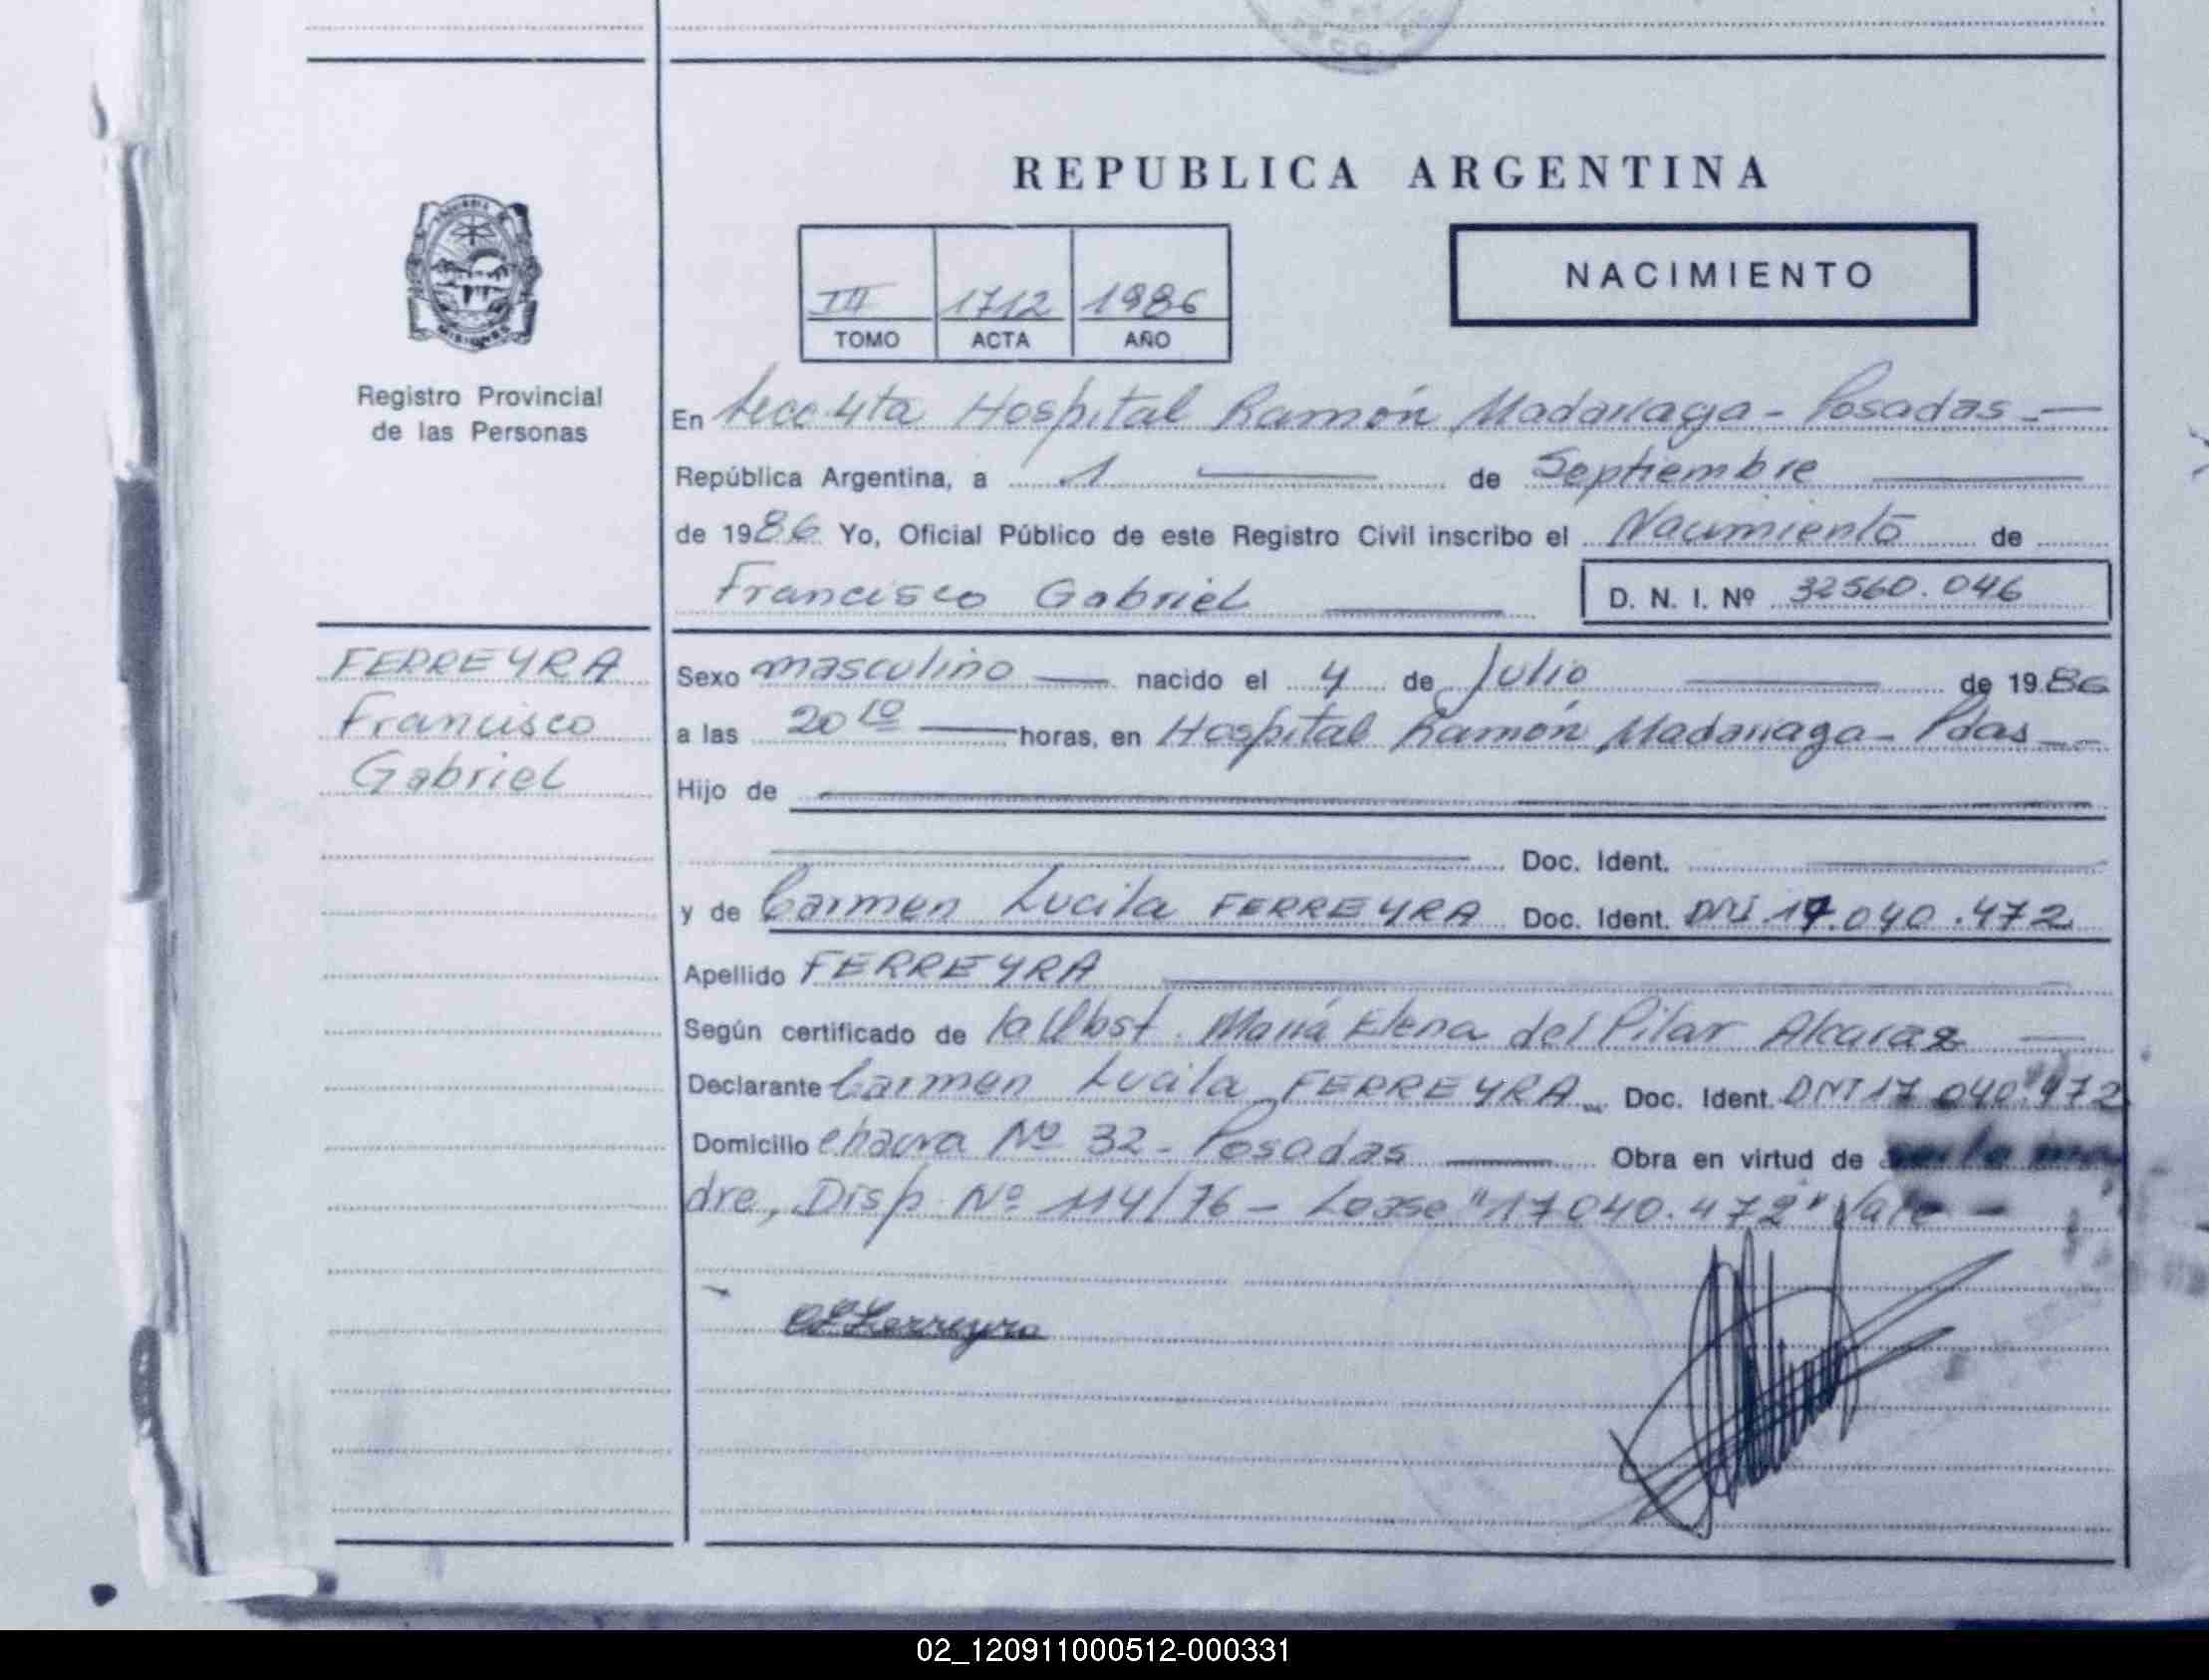 REPUBLICA ARGENTINA
NACIMIENTO
III 1712 1986
TOMO ACTA AÑO
Registro Provincial
de las Personas
En Secc 4ta Hospital Ramón Madariaga - Posadas -
República Argentina, a 1 de Septiembre
de 1986 Yo, Oficial Público de este Registro Civil inscribo el Nacimiento de
Francisco Gabriel D. N. I. Nº 32560.046
FERREYRA
Francisco
Gabriel
Sexo masculino nacido el 4 de Julio de 1986
a las 20 10 horas, en Hospital Ramón Madariaga - Pdas
Hijo de
Doc. Ident.
y de Carmen Lucila FERREYRA Doc. Ident. DNI 17.040.472
Apellido FERREYRA
Según certificado de la Obst. María Elena del Pilar Alcaraz
Declarante Carmen Lucila FERREYRA Doc. Ident. DNI 17.040.472
Domicilio chacra Nº 32 - Posadas Obra en virtud de ser la ma
dre, Disp. Nº 114/76 - Léase "17.040.472" Vale -
CLFerreyra
02_120911000512-000331